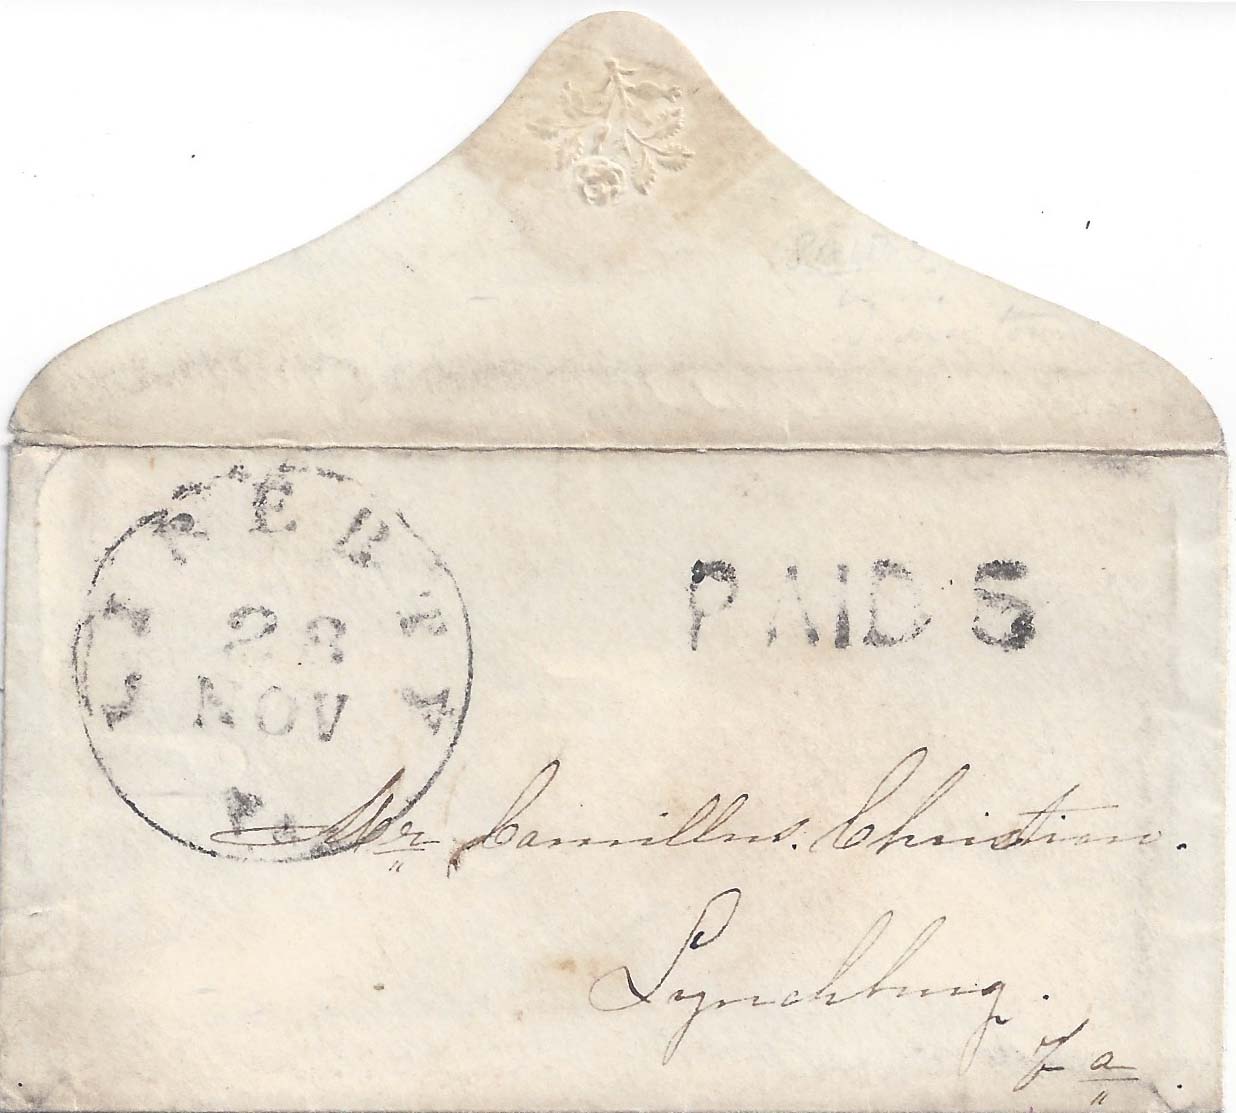 LIBERTY
23
NOV
Va.
PAID 5
Mr Camillus. Christian.
Lynchburg.
Va.